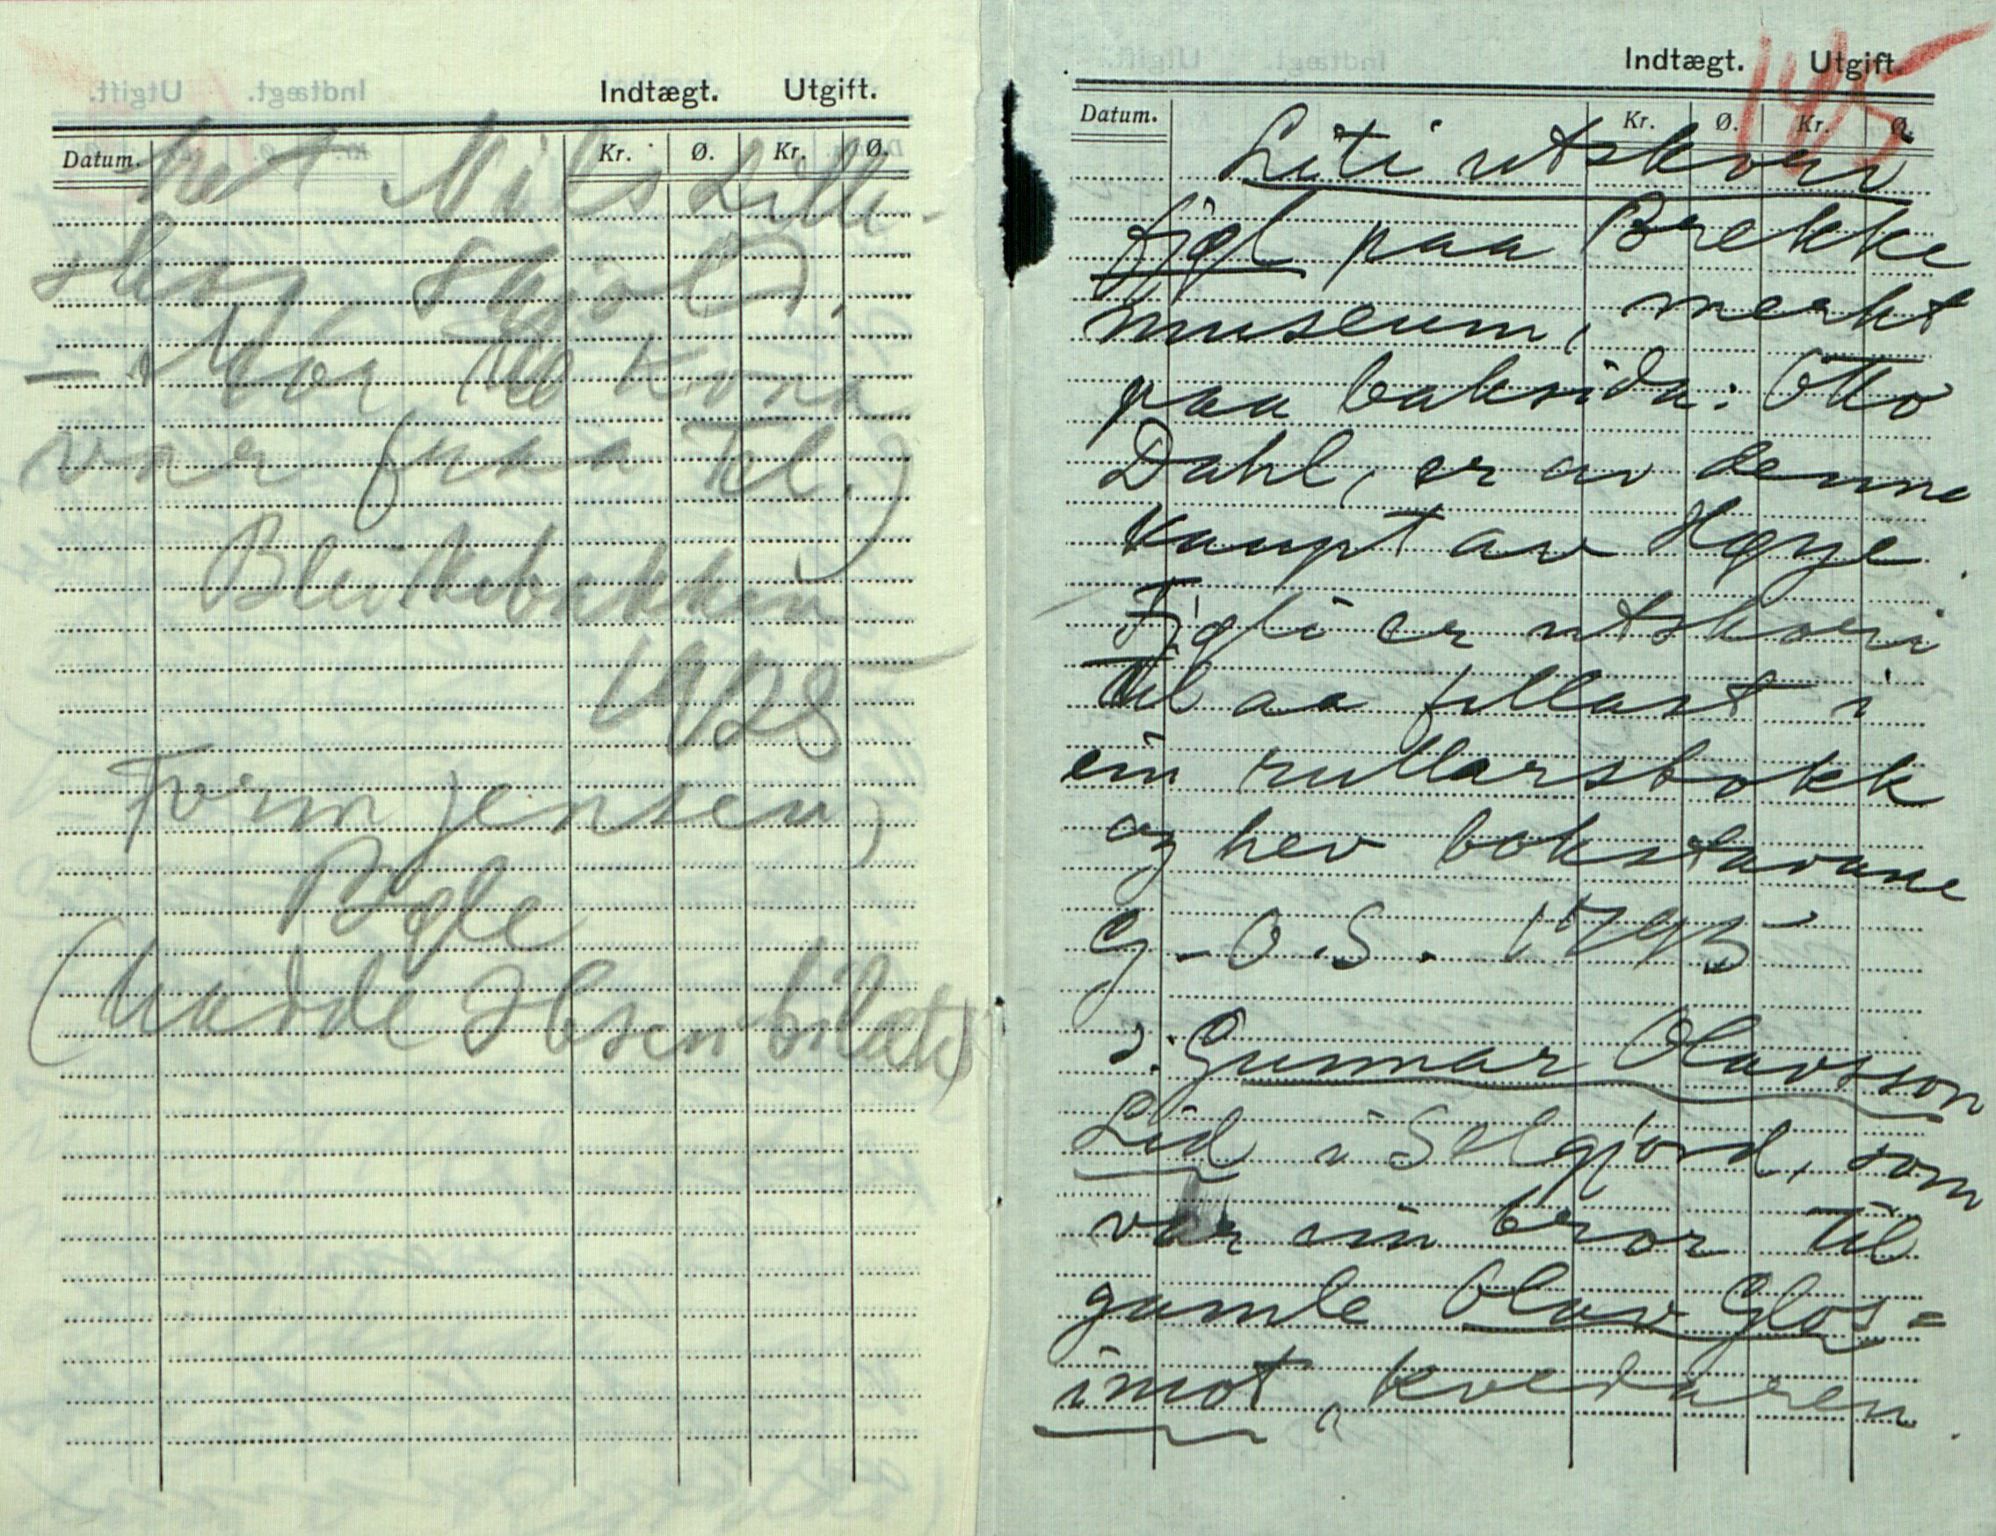 Indtægt. Utgift.
Datum. Kr. Ø. Kr. Ø.
het Nils Lille-
skog, Skjold.
— Mor til kona
var fraa Tel.
Bleikebakken
1928
Form Jensen,
Bøle
(Mårde Ibsenbilæte)
Indtægt. Utgift.
145
Datum. Kr. Ø. Kr. Ø.
Liti utskori
fjøl paa Brekke
museum, merkt
paa baksida: Otto
Dahl, er av denne
kaupt av Høye.
Fjøli er utskori
til aa fellast i
ein rullarstokk
og hev bokstavane
G. O. S. 1795
ɔ: Gunnar Olavsson
Lid i Selgjord, som
var ein bror til
gamle Olav Glos=
imot, kvedaren.